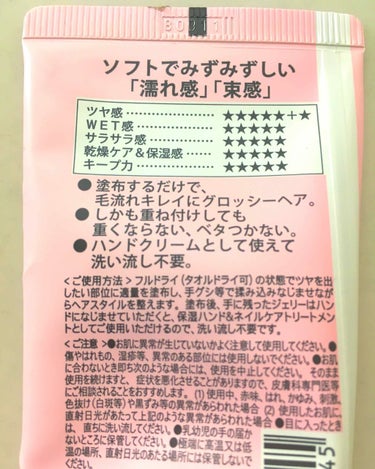 ソフトでみずみずしい
「濡れ感」「束感」
ツヤ感 ………………… ★★★★★+★
WET感 ………………… ★★★★★
サラサラ感 …………… ★★★★★
乾燥ケア&保湿感 …… ★★★★★
キープ力 ……………… ★★★★★
● 塗布するだけで、
毛流れキレイにグロッシーヘア。
● しかも重ね付けしても
重くならない、ベタつかない。
● ハンドクリームとして使えて
洗い流し不要。
<ご使用方法> フルドライ (タオルドライ可) の状態でツヤを出
したい部位に適量を塗布し、手グシ等で揉み込みなじませなが
らヘアスタイルを整えます。塗布後、手に残ったジェリーはハン
ドになじませていただくと、保湿ハンド&ネイルケアトリートメン
トとしてご使用いただけるので、洗い流し不要です。
<ご注意> ●お肌に異常が生じていないかよく注意して使用してください。●
傷やはれもの、湿疹等、異常のある部位には使用しないでください。●お肌
に合わないとき即ち次のような場合には、使用を中止してください。そのまま
使用を続けますと、症状を悪化させることがありますので、皮膚科専門医等
にご相談されることをおすすめします。(1) 使用中、赤味、はれ、かゆみ、刺激、
色抜け (白斑) 等や黒ずみ等の異常があらわれた場合 (2) 使用したお肌に、
直射日光があたって上記のような異常があらわれた場合 ●目に入ったとき
は、直ちに洗い流してください。●乳幼児の手の届か
ないところに保管してください。●極端に高温又は低
温の場所、直射日光のあたる場所には保管しないで
ください。
45